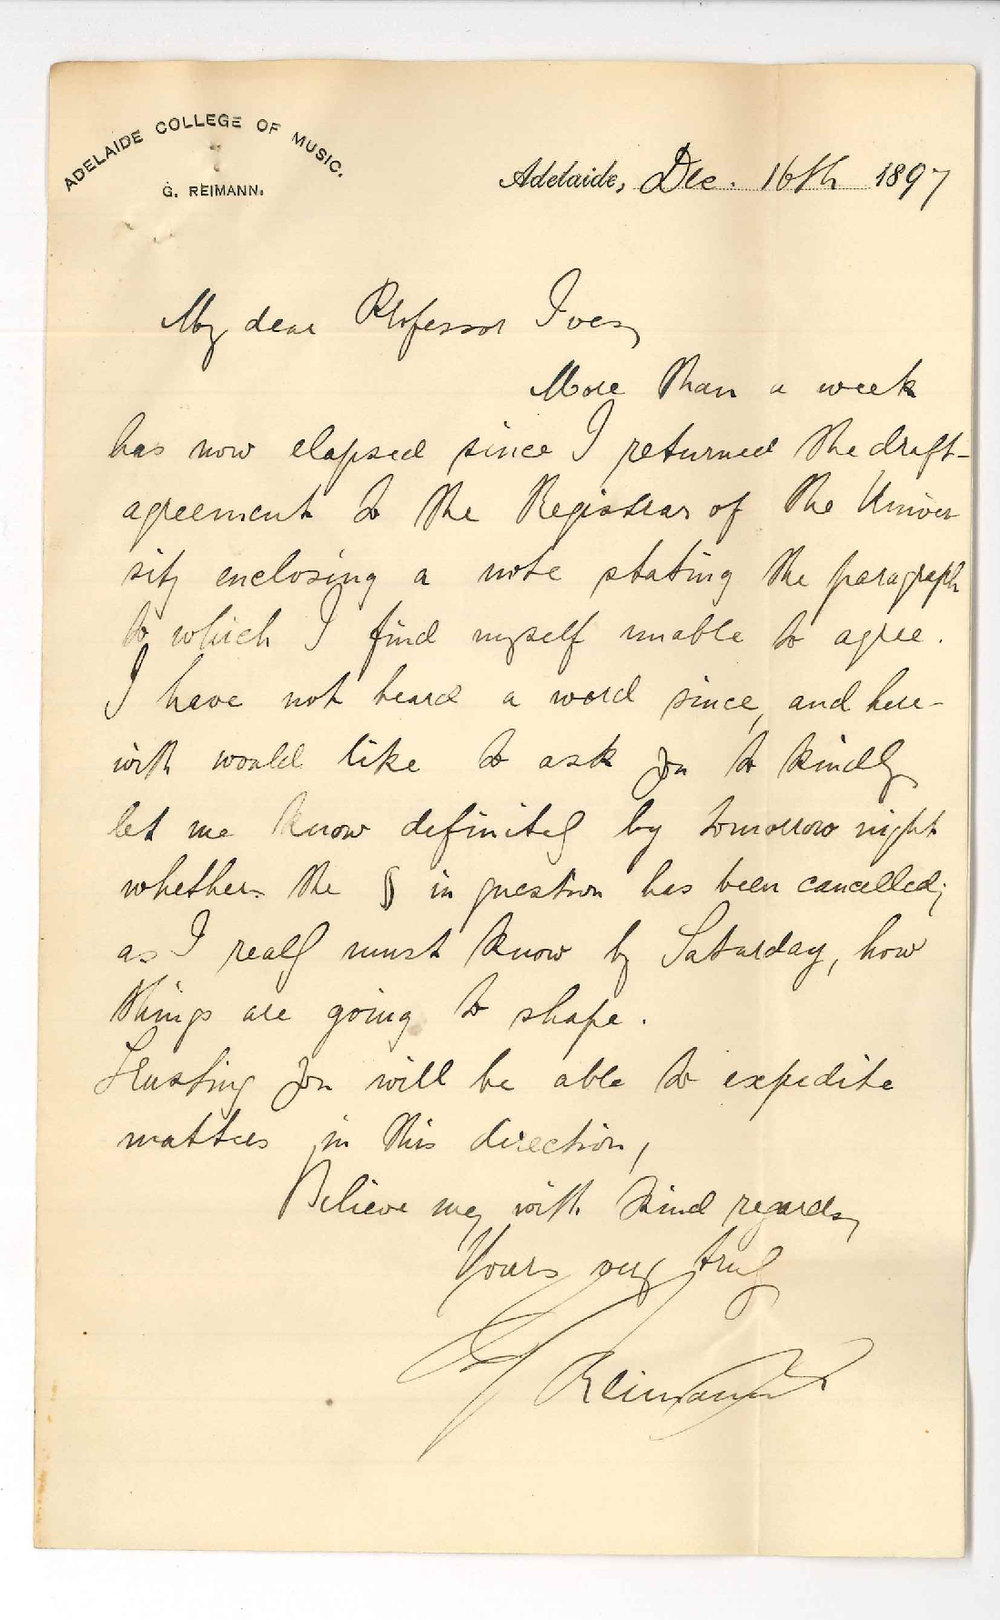 ADELAIDE COLLEGE OF MUSIC.
G. REIMANN.
Adelaide, Dec. 16th 1897
My dear Professor Ives,
More than a week
has now elapsed since I returned the draft-
agreement to the Registrar of the Univer
sity enclosing a note stating the paragraph
to which I find myself unable to agree.
I have not heard a word since, and here-
with would like to ask you to kindly
let me know definitely by tomorrow night
whether the § in question has been cancelled;
as I really must know by Saturday, how
things are going to shape.
Trusting you will be able to expedite
matters in this direction,
Believe me, with kind regards,
Yours very truly
G Reimann